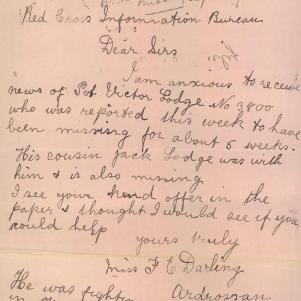 Red Cross Information Bureau
Dear Sirs
I am anxious to receive
news of Pvt Victor Lodge No 3800
who was reported this week to have
been missing for about 6 weeks.
His cousin Jack Lodge was with
him & is also missing
I see your kind offer in the
paper & thought I would see if you
could help
yours truly
Miss F E Darling
He was fighting Ardrossan